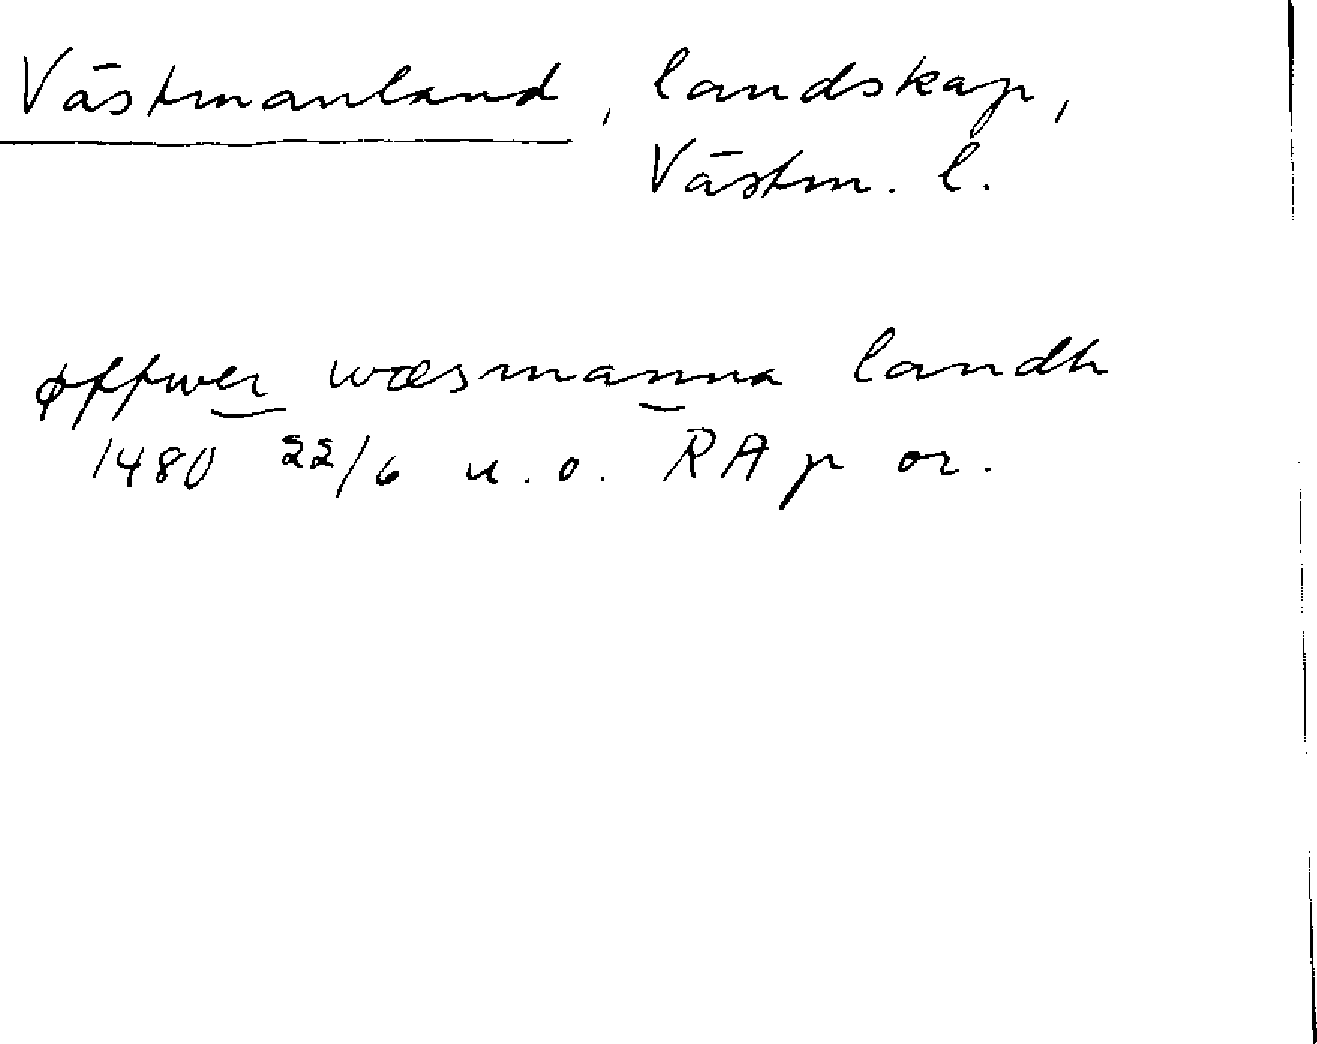 Västmanland, landskap,
Västm. l.
øffwer wæsmanna landh
1480 22/6 u.o. RAp or.